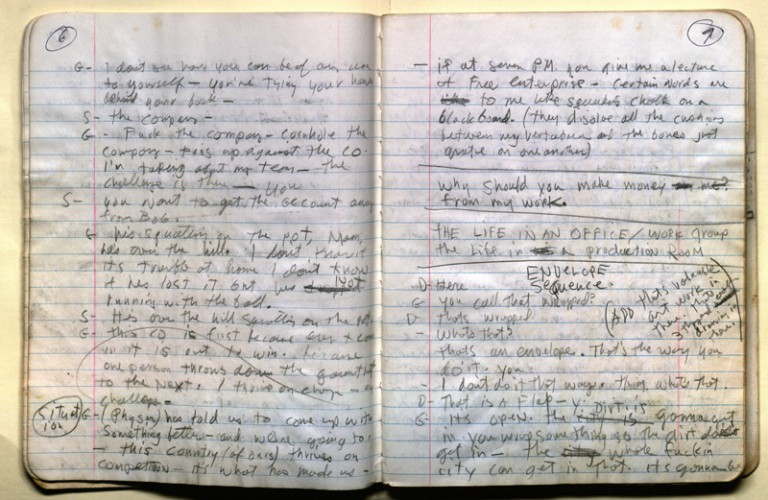 6
G- I don't see how you can be of any use
to yourself - you're tying your hand
behind your back -
S- the company -
G- Fuck the company - cornhole the
company - piss up against the CO.
I'm talking abpt my team - the
challenge is there - you
S- you want to get the account away
from Bob.
G his squatting on the pot, Mam,
has over the hill. I don't
it's trouble at home I don't know
he has lost it but
running with the ball.
S- He's over the hill squatting on the pot
G- this CO is first because
in it is out to win. because
one person throws down the gauntlet
to the next. I thrive on
challenge -
Situation
G- has told us to come up with
Something better - and we're going to
- this country (of ours) thrives on
competition - it's what has made us -
9
- if at seven P.M. you give me a lecture
of Free enterprise - certain words are
to me like squeaking chalk on a
blackboard. (they disolve all the cushions
between my vertabrea and the bones just
grate on one another)
Why Should you make money
from my work.
THE LIFE IN AN OFFICE / WORK group
the Life in a production ROOM
ENVELOPE
Sequence.
D- Here
G- you call that wrapped?
D- that's wrapped
- What's that?
that's an envelope. That's the way you
do it. you.
- I don't do it that way. what's that.
D- That is a Flap -
G- it's open. the Dirt is gonna get
in. you wrap something so the dirt does
get in - the whole fuckin
city can get in that. it's gonna be
(ADD that's valuable
art work in
there.
3 thousand